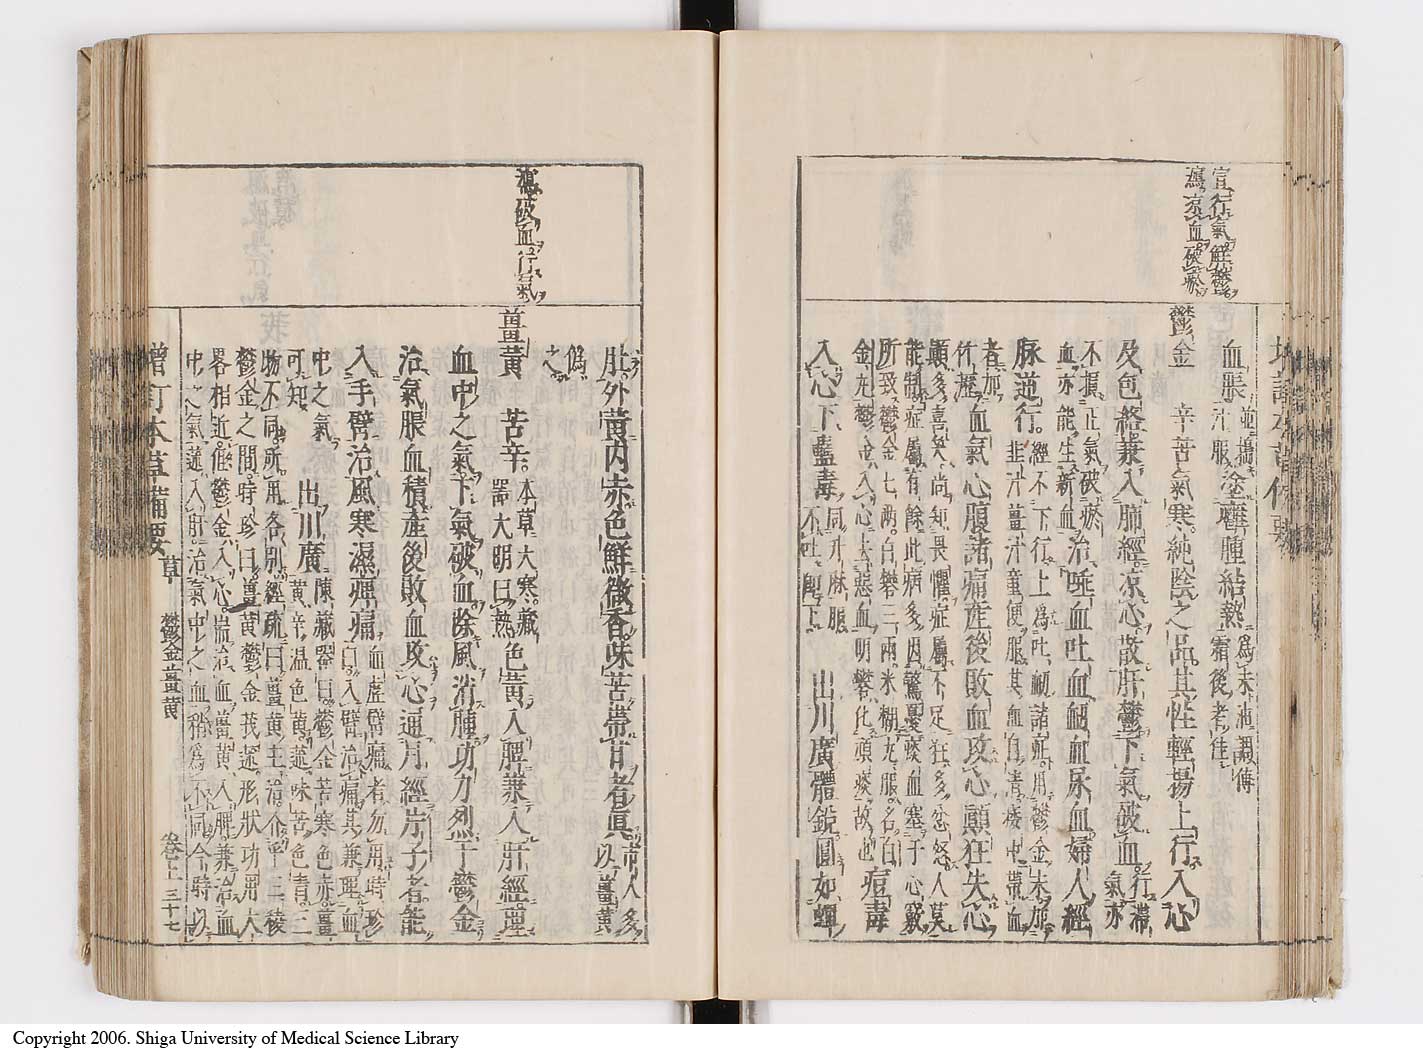 宣行氣解鬱
瀉涼血破瘀
血脹汁服塗癰腫結熱霜後者佳
鬱金 辛苦氣寒純陰之品其性輕揚上行入心
及包絡兼入肺經凉心散肝鬱下氣破血行滯氣亦
不損正氣破瘀血亦能生新血治吐血衄血尿血婦人經
脉逆行經不下行上為吐衄諸症用鬱金末加韭汁薑汁童便服其血自清痰中帶血
者加血氣心腹諸痛産後敗血攻心顚狂失心
顚多喜笑尚知畏懼症屬不足狂多忿怒人莫
能制症屬有餘此病多因驚憂痰血塞于心竅
所致鬱金七兩白礬三兩米糊丸服名白
金丸鬱金入心去惡血明礬化頑痰故也痘毒
入心下蠱毒同升麻服不吐則下 出川廣體鋭圓如蟬
肚外黄内赤色鮮微香味苦帶甘者眞市人多以薑黄
僞之
瀉破血行氣
薑黄 苦辛本草大寒藏器大明曰熱色黄入脾兼入肝經理
血中之氣下氣破血除風消腫功力烈于鬱金
治氣脹血積産後敗血攻心通月經片子者能
入手臂治風寒濕痺痛血虚臂痛者勿用時珍曰入臂治痛其兼理血
中之氣可知 出川廣陳藏器曰鬱金苦寒色赤薑黄辛温色黄莪味苦色青三
物不同所用各别經疏曰薑黄主治介乎三稜
鬱金之間時珍曰薑黄鬱金莪蒁形狀功用大
畧相近但鬱金入心治血薑黄入脾兼治血
中之氣蒁入肝治氣中之血稍爲不同今時以
增訂本草備要 草 鬱金薑黄 卷上 三十七